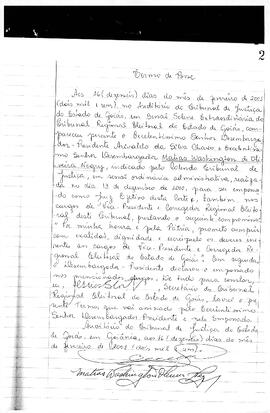 2
Termo de Posse
Aos 16 (dezesseis) dias do mês de janeiro de 2001
(dois mil e um), no Auditório do Tribunal de Justiça
do Estado de Goiás, em Sessão Solene Extraordinária do
Tribunal Regional Eleitoral do Estado de Goiás, com-
pareceu perante o Excelentíssimo Senhor Desembarga-
dor-Presidente da Silva Chaves o Excelentíssi-
mo Senhor Desembargador Matias Washington de Oli-
veira Negry, indicado pelo Tribunal de
Justiça, em sessão ordinária administrativa, realiza-
da no dia 13 de dezembro de 2000, para ser empossa-
do como Juiz Efetivo desta Corte, também nos
cargos de Vice-Presidente e Corregedor Regional Eleito-
ral deste Tribunal, prestando o seguinte compromisso:
" Por minha honra e pela Pátria, prometo cumprir
com exatidão, dignidade e escrúpulo os deveres ine-
rentes aos cargos de Vice-Presidente e Corregedor Re-
gional Eleitoral do Estado de Goiás". Em seguida,
o Desembargador-Presidente declarou-o empossado
nos mencionados cargos. De tudo, para constar,
eu, Secretário do Tribunal
Regional Eleitoral do Estado de Goiás, lavrei o pre-
sente Termo que vai assinado pelo Excelentíssimo
Senhor Desembargador-Presidente e pelo Empossado.
Auditório do Tribunal de Justiça do Estado
de Goiás, em Goiânia, aos 16 (dezesseis) dias do mês
de janeiro de 2001 (dois mil e um).
Matias Washington Oliveira Negry